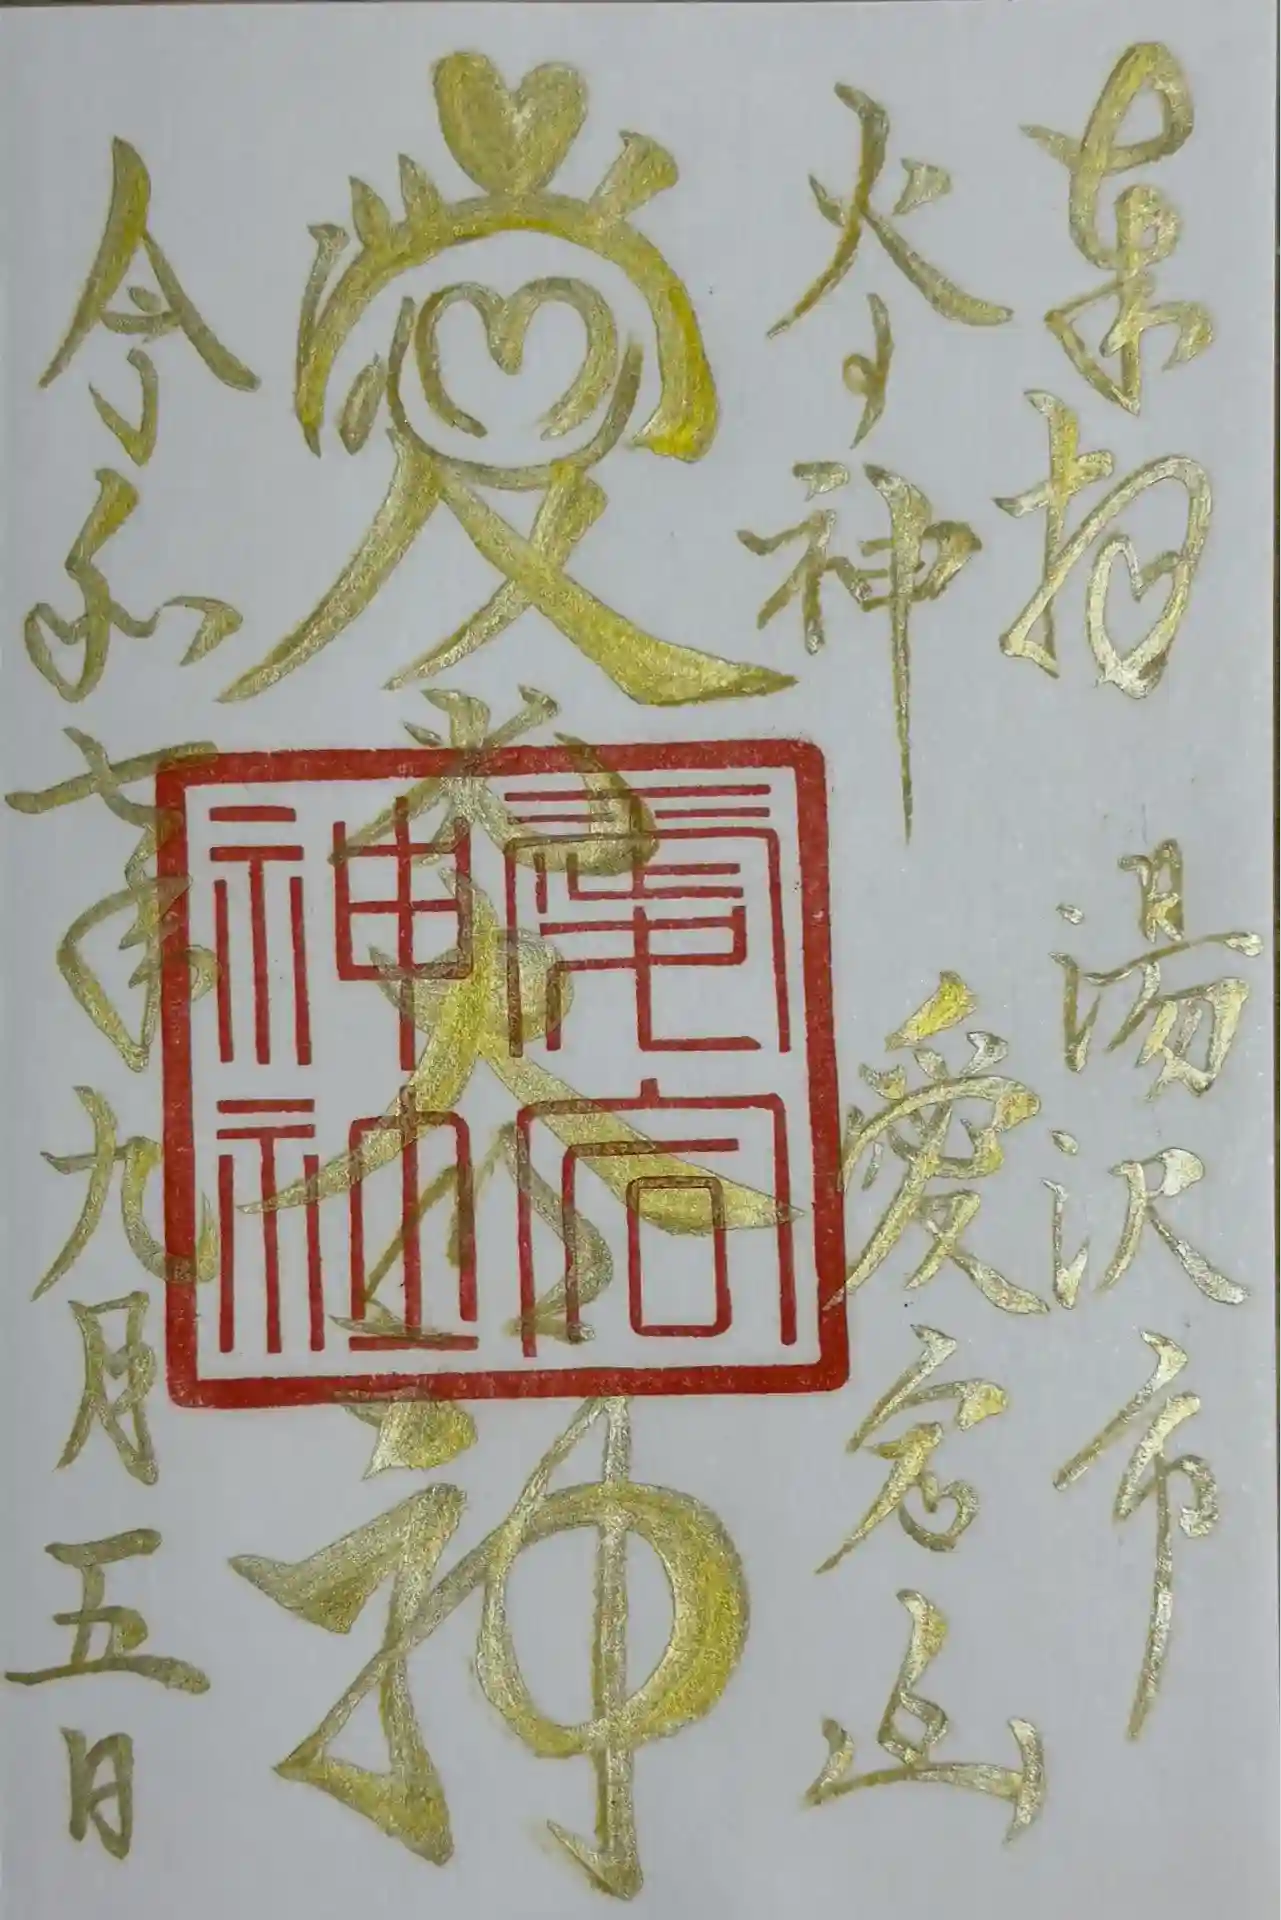 奉拝 湯沢市
火の神 愛宕山
愛宕大神
愛宕神社
令和七年九月五日